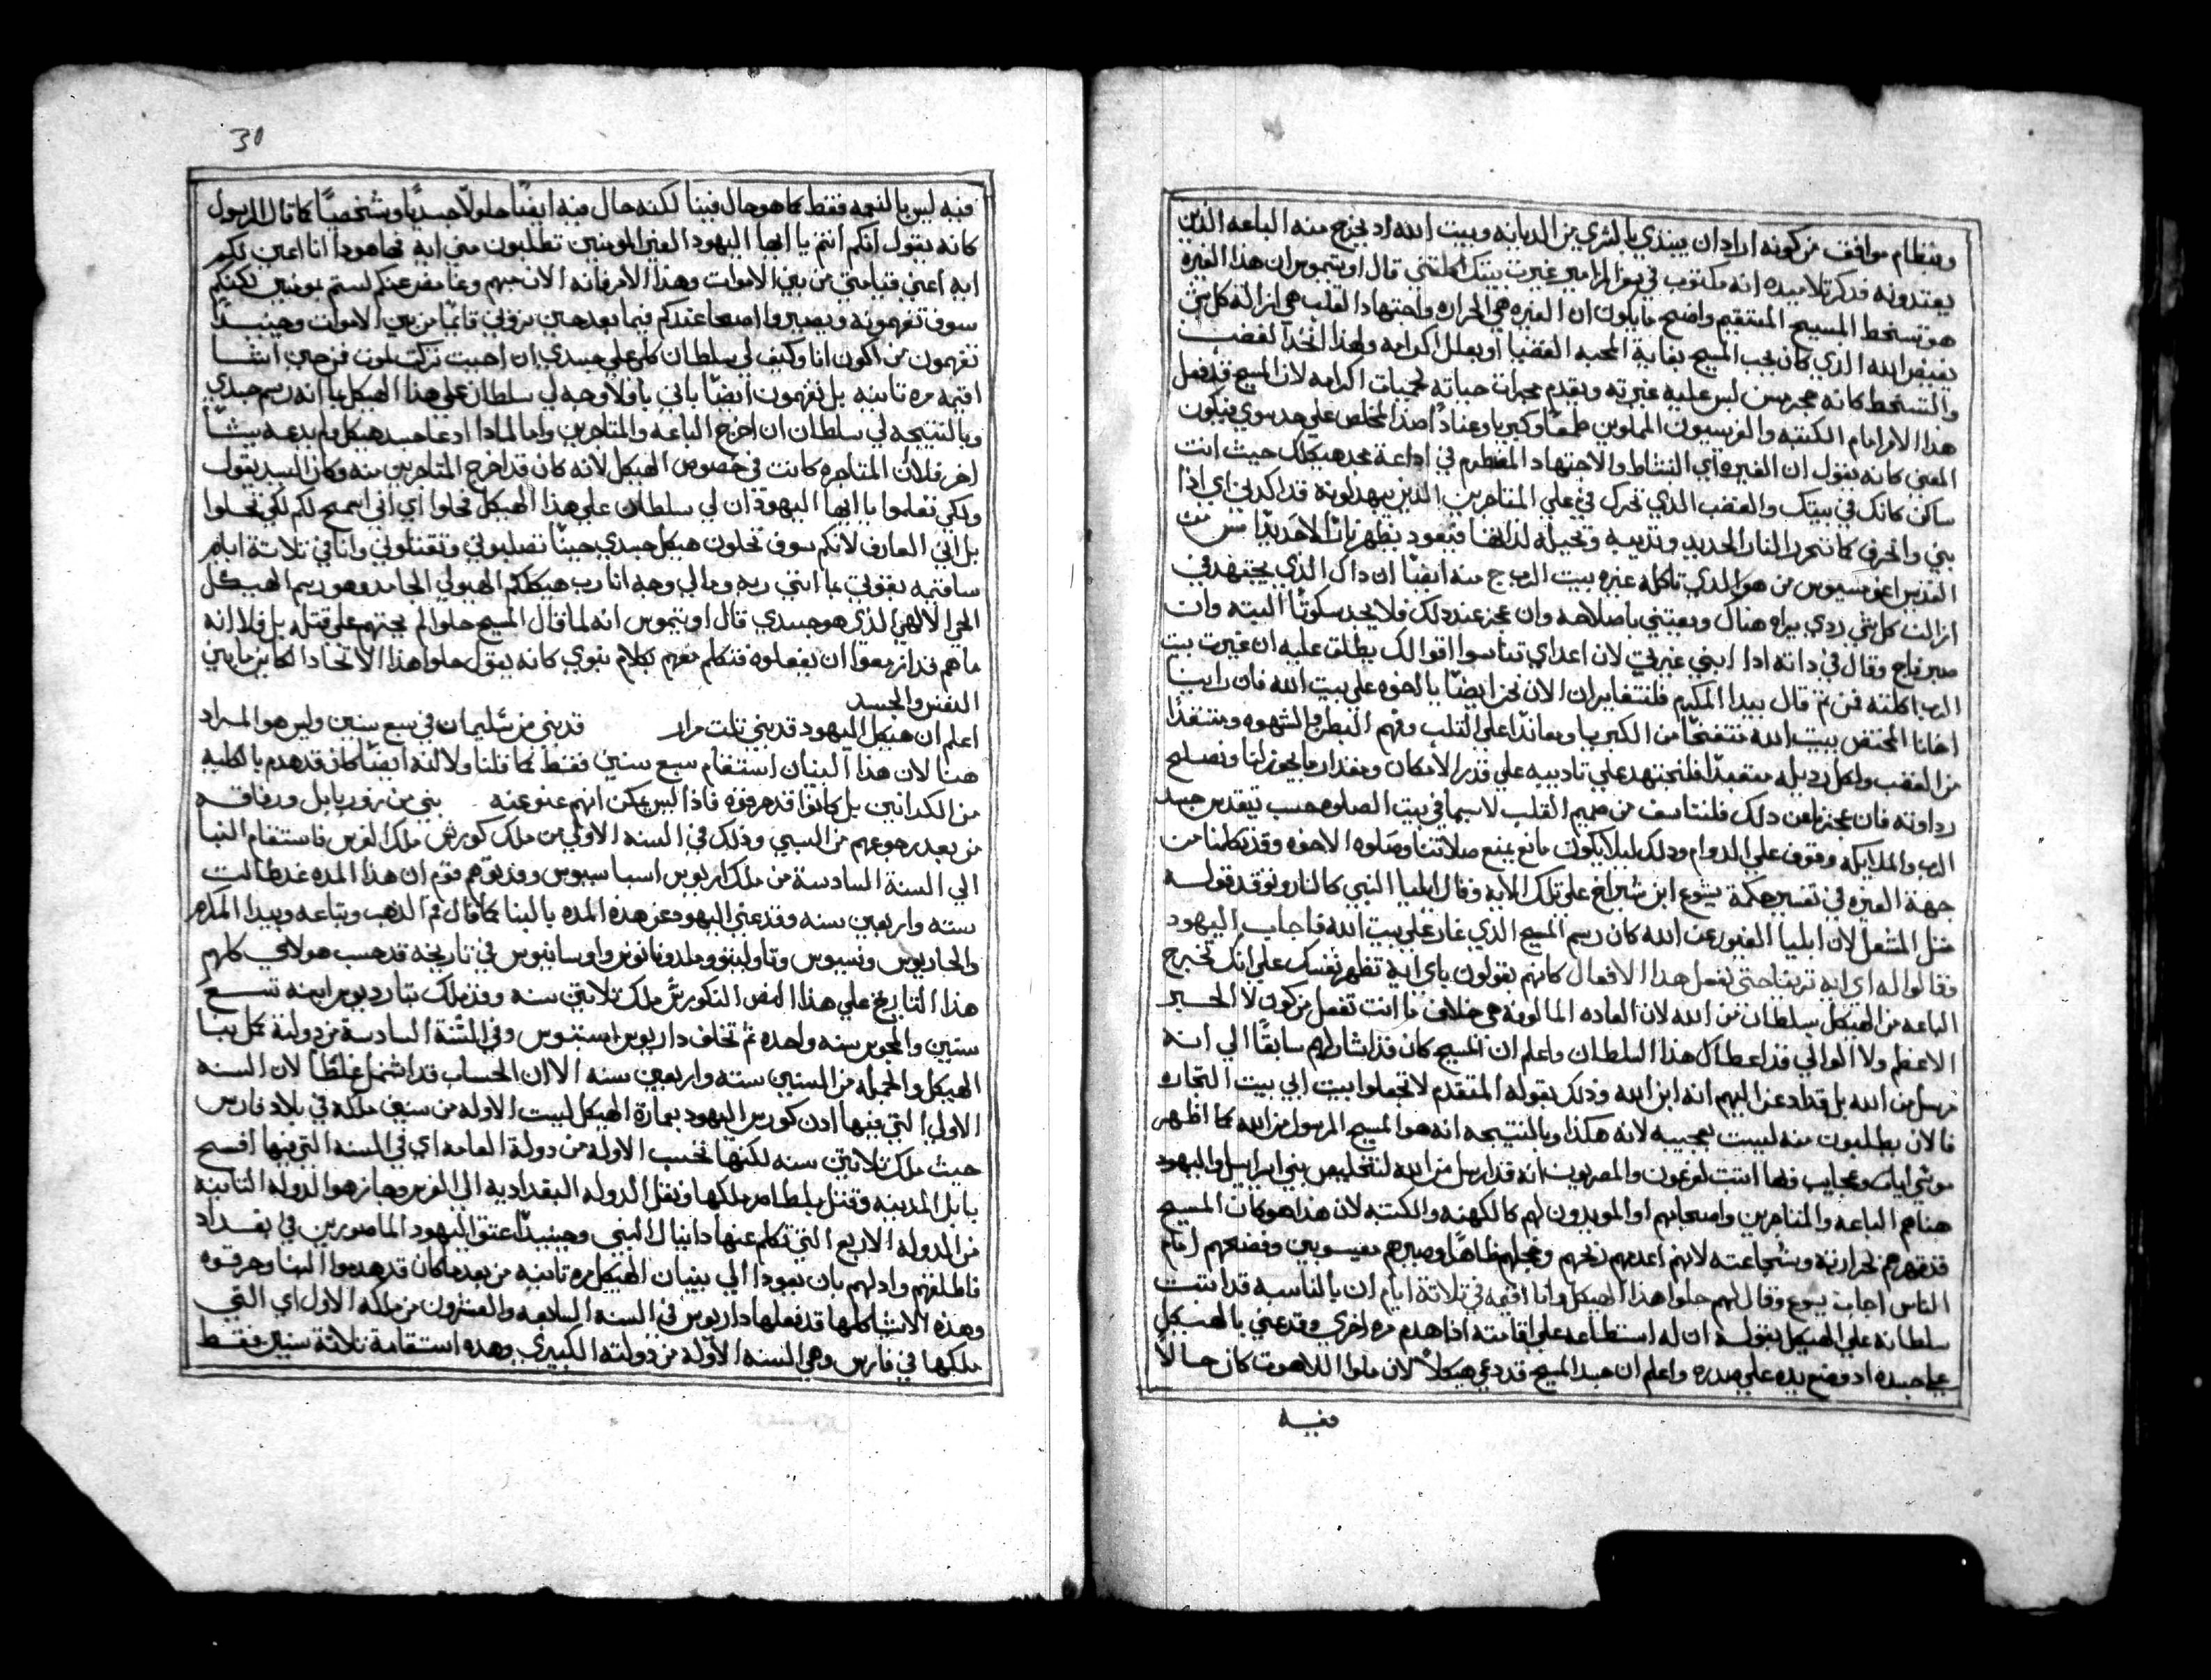 ونظام موافق من كونه اراد ان يبتدي بالشري من الديانه وبيت الله اد يخرج منه الباعه الذين
يعتدونه فدكر تلاميده انه مكتوب في المزامير غيرت بيتك اكلتني قال اوتيموس ان هذا الغيره
هو تسخط المسيح المنتقم واضح ما يكون ان الغيره هي الحراره واجتهاد القلب هي ازالة كل شي
يغيض الله الذي كان يحب المسيح بغاية المحبه العضيا او يعلل اكرامه ولهذا اتخد الغضب
والتسخط كانه لبس عليه غيرته ويقدم حياته لمحبات اكرامه لان المسيح قد فعل
هذا الامر امام الكتبه والفريسيون المملوين طمعًا وكبريا وعنادًا ضد المخلص
المعني كانه يقول ان الغيره اي النشاط والاجتهاد المضطرم في اداعة مجد هيكلك حيث انت
ساكن كانك في بيتك والغضب الذي تحرك في علي المتاجرين الذين يهدلونه قد اكلني اي اذا
بني واحرق كما تحرق النار الحديد وتذيبه وتحيله لذاتها فيعود يظهر نارًا لا حديدًا
القديس اغوسيوس من هو الذي تاكله غيره بيت الرب ج منه ايضًا ان داك الذي يجتهد في
ازالت كل شي ردي يراه هناك ويعتني باصلاحه وان عجز عند دلك فلا يجد سكوتًا البته وان
صبر ناح وقال في داته ادا ابني غيرتي لان اعداي تناسوا اقوالك يطلق عليه ان غيرت بيت
الرب اكلته فمن ثم قال بيدا المكرم فلنتغاير ان الان نحن ايضًا يا اخوه علي بيت الله فان راينا
اخانا المختص ببيت الله منتفخًا من الكبريا ومعاندًا علي القلب ونهم البطن والشهوه ومتقدًا
من الغضب ولكل رديله متعبدًا فلنجتهد علي تاديبه علي قدر الامكان ومقدار ما يجوز لنا ونصلح
رداوته فان عجزنا عن دلك فلنتاسف من صميم القلب لاسيما في بيت الصلوه حسب تيقدس جسد
الرب والملايكه وقوف علي الدوام ودلك ليلا يكون مانع يمنع صلاتنا وصلوه الاخوه وقد تكلمنا من
جهة الغيره في تفسير حكمة يشوع ابن شيراخ علي تلك الايه وقال ايليا النبي كالنار وتوقد قوله
مثل المشعل لان ايليا الغيور عن الله كان رسم المسيح الذي غار علي بيت الله فاجاب اليهود
وقالوا له اي ايه ترينا حتي تفعل هدا الافعال كانهم يقولون باي ايه تظهر نفسك علي انك تخرج
الباعه من الهيكل بسلطان من الله لان العاده المالوفه هي خلاف ما انت تفعل من كون لا الحبر
الاعظم ولا الوالي قد اعطاك هذا السلطان واعلم ان المسيح كان قد اشار لهم سابقًا الي انه
مرسل من الله بل قد ادعن اليهم انه ابن الله ودلك بقوله المتقدم لا تجعلوا بيت ابي بيت التجاره
فالان يطلبون منه ليبت بعجيبه لانه هكذا وبالنتيجه انه هو المسيح المرسول من الله كما اظهر
موسي ايات وعجايب فيها اتبت لفرعون والمصريين انه قد ارسل من الله لتخليص بني اسراييل واليهود
هنا هم الباعه والمتاجرين واصحابهم او المويدون لهم كالكهنه والكتبه لان هذا هو كان المسيح
قد قهرهم بحرارته وشجاعته لانهم اعدمهم ربحهم وصيرهم مغيوبين وفضحهم امام
الناس اجاب يسوع وقال لهم حلوا هذا الهيكل وانا اقيمه في تلاثة ايام ان بالناسبه قد اتبت
سلطانه علي الهيكل بقوله ان له استطاعه علي اقامته اذا هدم مره اخري وقد عني بالهيكل
علي جسده اد وضع يده علي صدره واعلم ان جسد المسيح قد دعي هيكلًا لان ملوا اللاهوت كان حالًا
فيه
30
فيه ليس بالنعمه فقط كما هو حال فينا لكنه حال فيه ايضًا حلولًا جسديًا وشخصيًا كما قال الرسول
كانه يقول انكم انتم يا ايها اليهود الغير المومنين تطلبون مني ايه فها هودا انا اعين لكم
ايه اعني قيامتي من بين الاموات وهذا الامر فانه الان مبهم وغامض عنكم لستم بمومنين لكنكم
سوف تفهمونه ويصير واضحا عندكم فيما بعد حين تروني قايمًا من بين الاموات وحينيدًا
تفهمون من اكون انا وكيف لي سلطان كلي علي جسدي ان احببت تركت يموت فمن حين انتقا
اقيمه مره تانيه بل تفهمون ايضًا باني باولا وجه لي سلطان علي هذا الهيكل بما انه رسم جسدي
وبالنتيجه لي سلطان ان اخرج الباعه والمتاجرين واما لمادا ادعا جسد هيكل ولم يدعه بيتًا
اخر فلان المتاجره كانت في خصوص الهيكل لانه كان قد اخرج المتاجرين منه وكان السيد يقول
ولكي تعلموا يا ايها اليهود ان لي سلطان علي هذا الهيكل فحلوا اي اني اسمح لكم لكي تحلوا
بل اني العارف لانكم سوف تحلون هيكل جسدي حينًا تصلبوني وتقتلوني وانا في تلاتة ايام
ساقيمه بقوتي بما انني ربه ومالي وجه انا رب هيكلكم الهيولي الجامد وهو رسم الهيكل
الحي الالهي الذي هو جسدي قال اوتيموس انه لما قال المسيح حلوا لم يحتهم علي قتله بل قال انه
ما هم قد ازمعوا ان يفعلوه فتكلم معهم بكلام نبوي كانه يقول حلوا هذا الاتحاد الكاين ما بين
النفس والجسد
اعلم ان هيكل اليهود قد بني تلت مرار قد بني من سليمان في سبع سنين وليس هو المراد
هنا لان هذا البنيان استقام سبع سنين فقط كما قلنا ولا لانه ايضًا كان قد هدم بالكليه
من الكلدانين بل كانوا قد حرقوه فاذا ليس يمكن انهم عنو عنه بني من زور بابل ورفاقه
من بعد رجوعهم من السبي ودلك في السنه الاولي من ملك كورش ملك الفرس فاستقام البنا
الي السنة السادسة من ملك داريوس اسباسبوس وقد توهم قوم ان هذا المده غد طالت
سته واربعين سنه وقد عني اليهود عن هذه المده بالبنا كما قال فم الذهب وبتاعه وبيدا المكرم
والحاريوس ونسيوس وتاوليتو وملدوناتوس واوسابيوس في تاريخه قد حسب هولاي كلهم
هذا التاريخ علي هذا النص ان كورش ملك تلاتين سنه وقد ملك ابنه تسع
سنين والمجوس سنه واحده ثم تخلف داريوس استبوس وفي السنة السادسة من دولته كمل بنا
الهيكل والجمله من السنين سته واربعين سنه الا ان الحساب قد اشتمل غلطًا لان السنه
الاولي التي فيها ادن كورش اليهود بعمارة الهيكل ليست الاوله من سنين ملكه في بلاد فارس
حيث ملك تلاتين سنه لكنها تحسب الاوله من دولة العامه اي في السنه التي فيها افتتح
بابل المدينه وقتل بلطاصر ملكها ونقل الدوله البغداديه الي الفرس وحاز هو الدوله التانيه
من الدوله الاربع التي تكلم عنها دانيال النبي وحينيدًا عتق اليهود الماسورين في بغداد
فاطلقهم وادن لهم بان يعودا الي بنيان الهيكل مره تانيه من بعد ما كان قد هدموا البنا وحرقوه
وهذه الاشيا كلها قد فعلها داريوس في السنه السابعه والعشرون من ملكه الاول اي التي
ملكها في فارس وهي السنه الاوله من دولته الكبيري وهده استقامة تلاتة سنين فقط